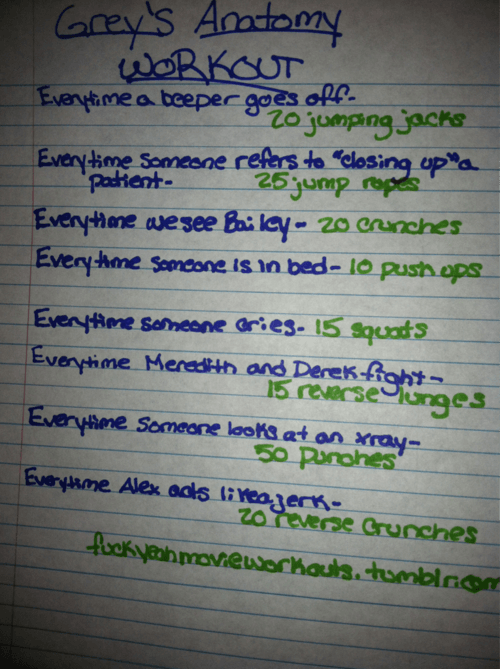 Grey's Anatomy
WORKOUT
Everytime a beeper goes off-
20 jumping jacks
Everytime Someone refers to "closing up" a
patient- 25 jump ropes
Everytime we see Bailey- 20 crunches
Everytime someone is in bed- 10 push ups
Everytime someone cries- 15 squats
Everytime Meredith and Derek fight-
15 reverse lunges
Everytime Someone looks at an xray-
50 punches
Everytime Alex acts like a jerk-
20 reverse crunches
fuckyeahmovieworkouts.tumblr.com